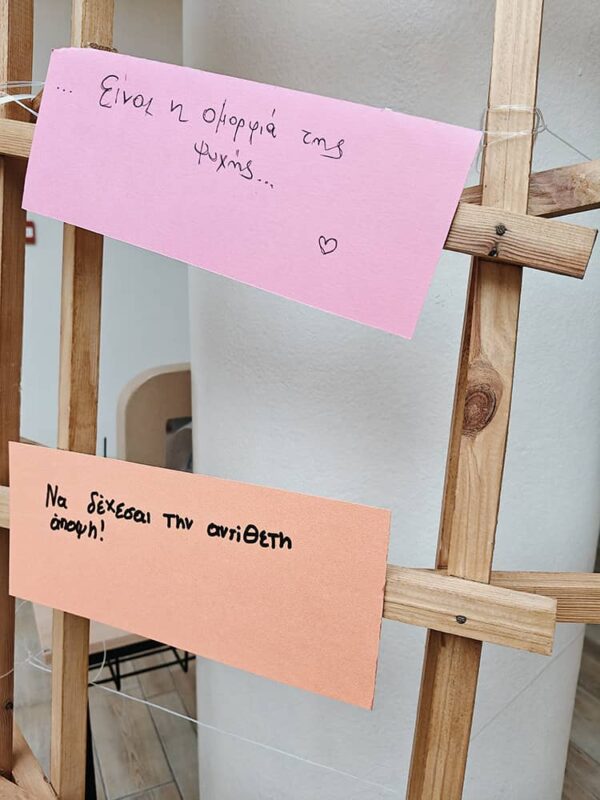 ... Είναι η ομορφιά της
ψυχής...
Να δέχεσαι την αντίθετη
άποψη!